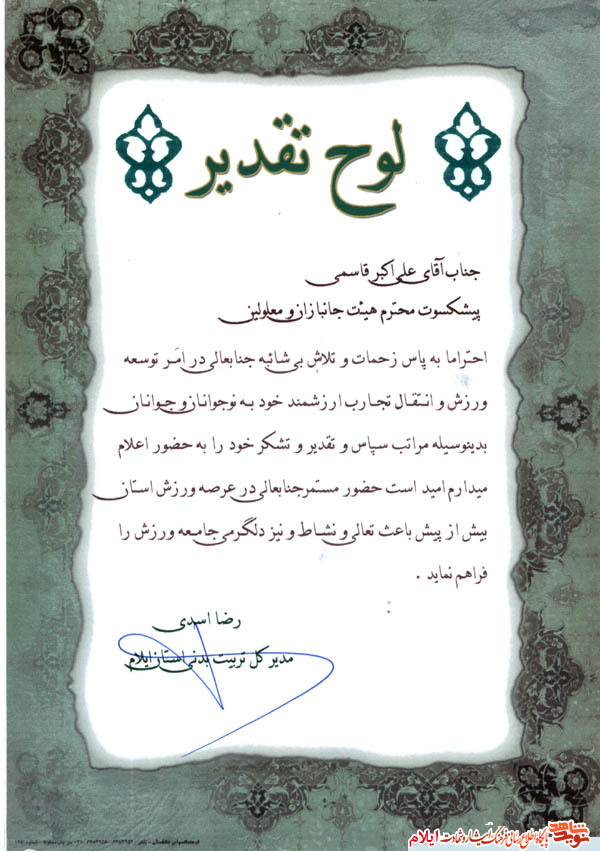 لوح تقدیر
جناب آقای علی اکبر قاسمی
پیشکسوت محترم هیئت جانبازان و معلولین
احتراما به پاس زحمات و تلاش بی شائبه جنابعالی در امر توسعه
ورزش و انتقال تجارب ارزشمند خود به نوجوانان و جوانان
بدینوسیله مراتب سپاس و تقدیر و تشکر خود را به حضور اعلام
میدارم امید است حضور مستمر جنابعالی در عرصه ورزش استان
بیش از پیش باعث تعالی و نشاط و نیز دلگرمی جامعه ورزش را
فراهم نماید .
رضا اسدی
مدیر کل تربیت بدنی استان ایلام
نوید شاهد پایگاه اطلاع رسانی فرهنگ ایثار و شهادت ایلام